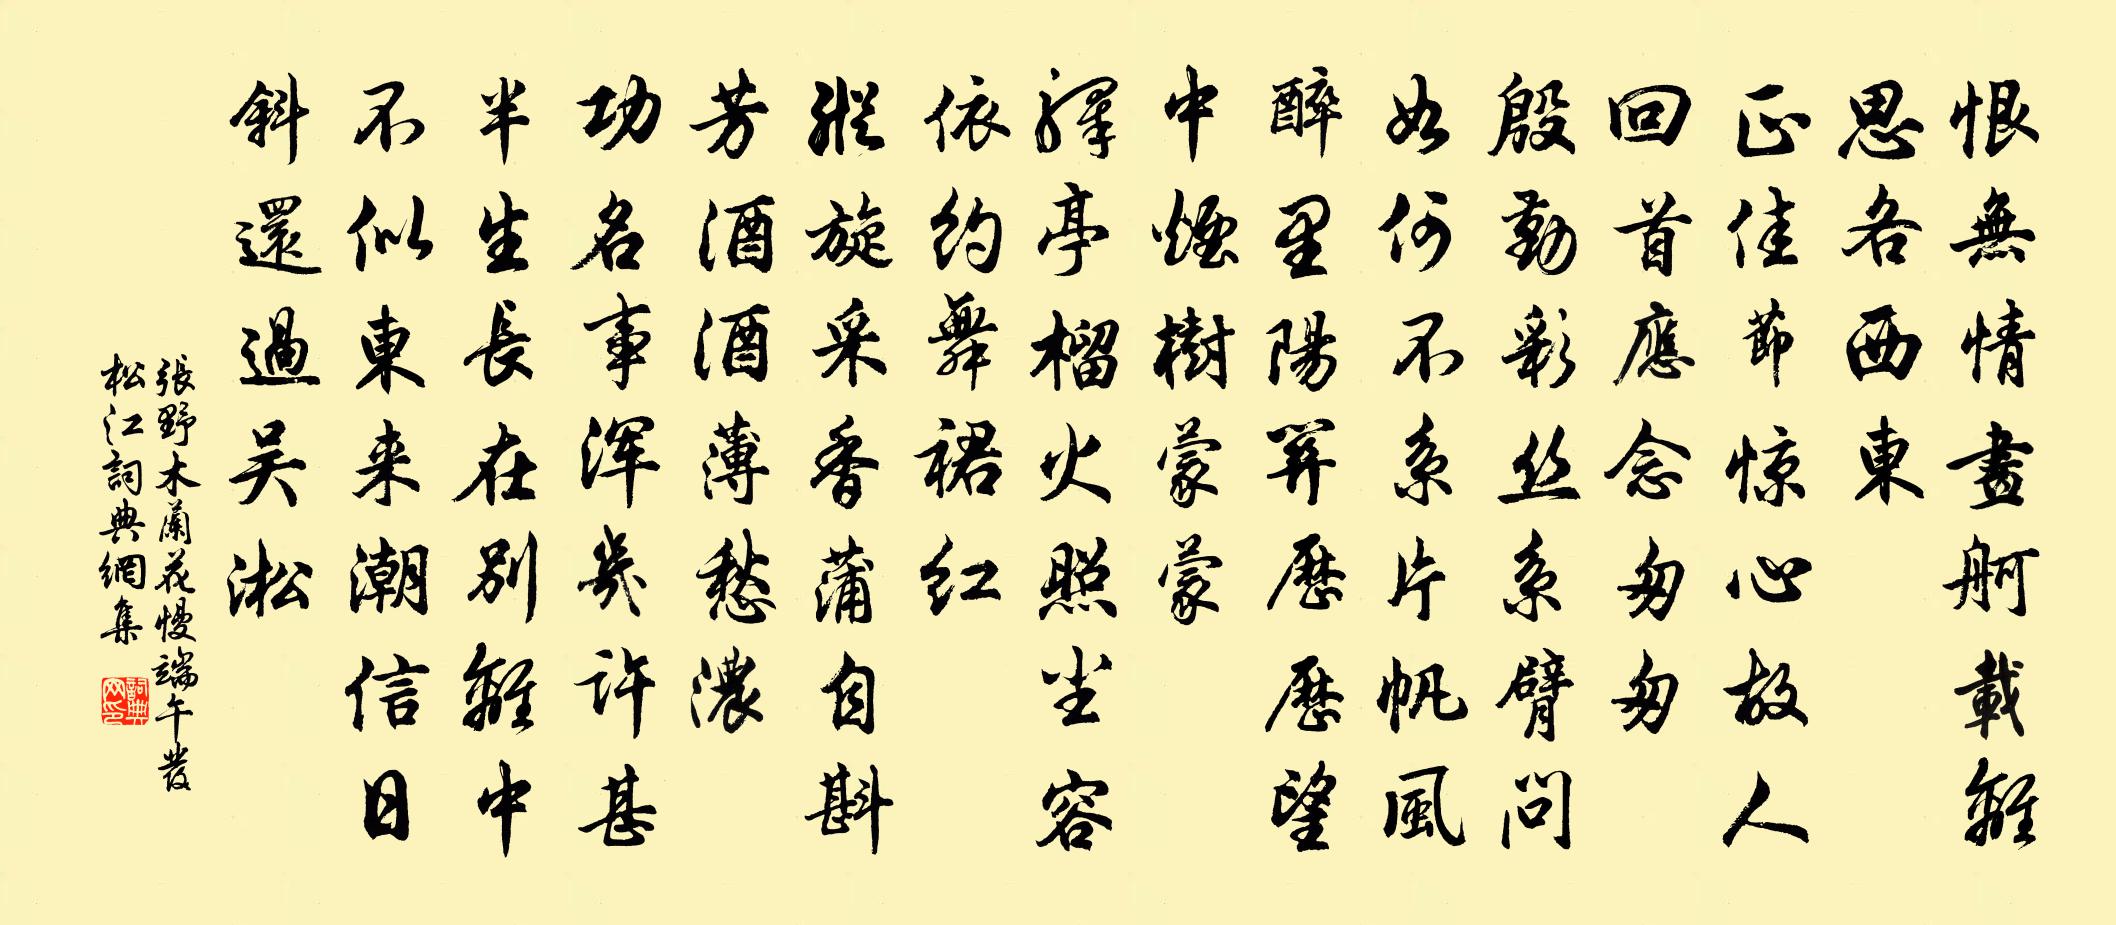 恨無情畫舸載離
思各西東
正佳節惊心故人
回首應念匆匆
殷勤彩丝系臂問
如何不系片帆風
醉里陽關歷歷望
中煙樹蒙蒙
驛亭榴火照尘容
依約舞裙红
縱旋采香蒲自斟
芳酒酒薄愁濃
功名事浑幾許甚
半生長在别離中
不似東来潮信日
斜還過吴淞
張野木蘭花慢端午發
松江詞典網集
詞典网印